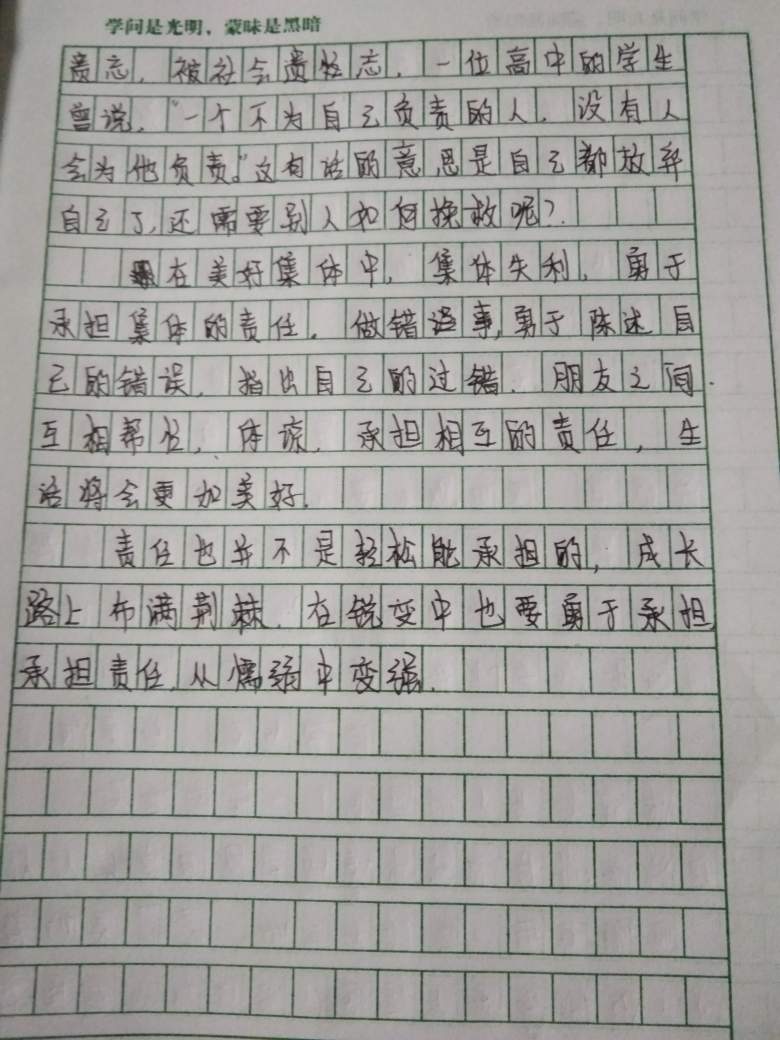 学问是光明，蒙昧是黑暗
责忘，被社会遗忘，一位高中的学生
曾说，“一个不为自己负责的人，没有人
会为他负责。”这句话的意思是自己都放弃
自己了，还需要别人如何挽救呢？
在美好集体中，集体失利，勇于
承担集体的责任，做错事，勇于陈述自
己的错误，指出自己的过错，朋友之间，
互相帮忙，体谅，承担相互的责任，生
活将会更加美好。
责任也并不是轻松能承担的，成长
路上布满荆棘，在锐变中也要勇于承担
承担责任，从懦弱中变强。